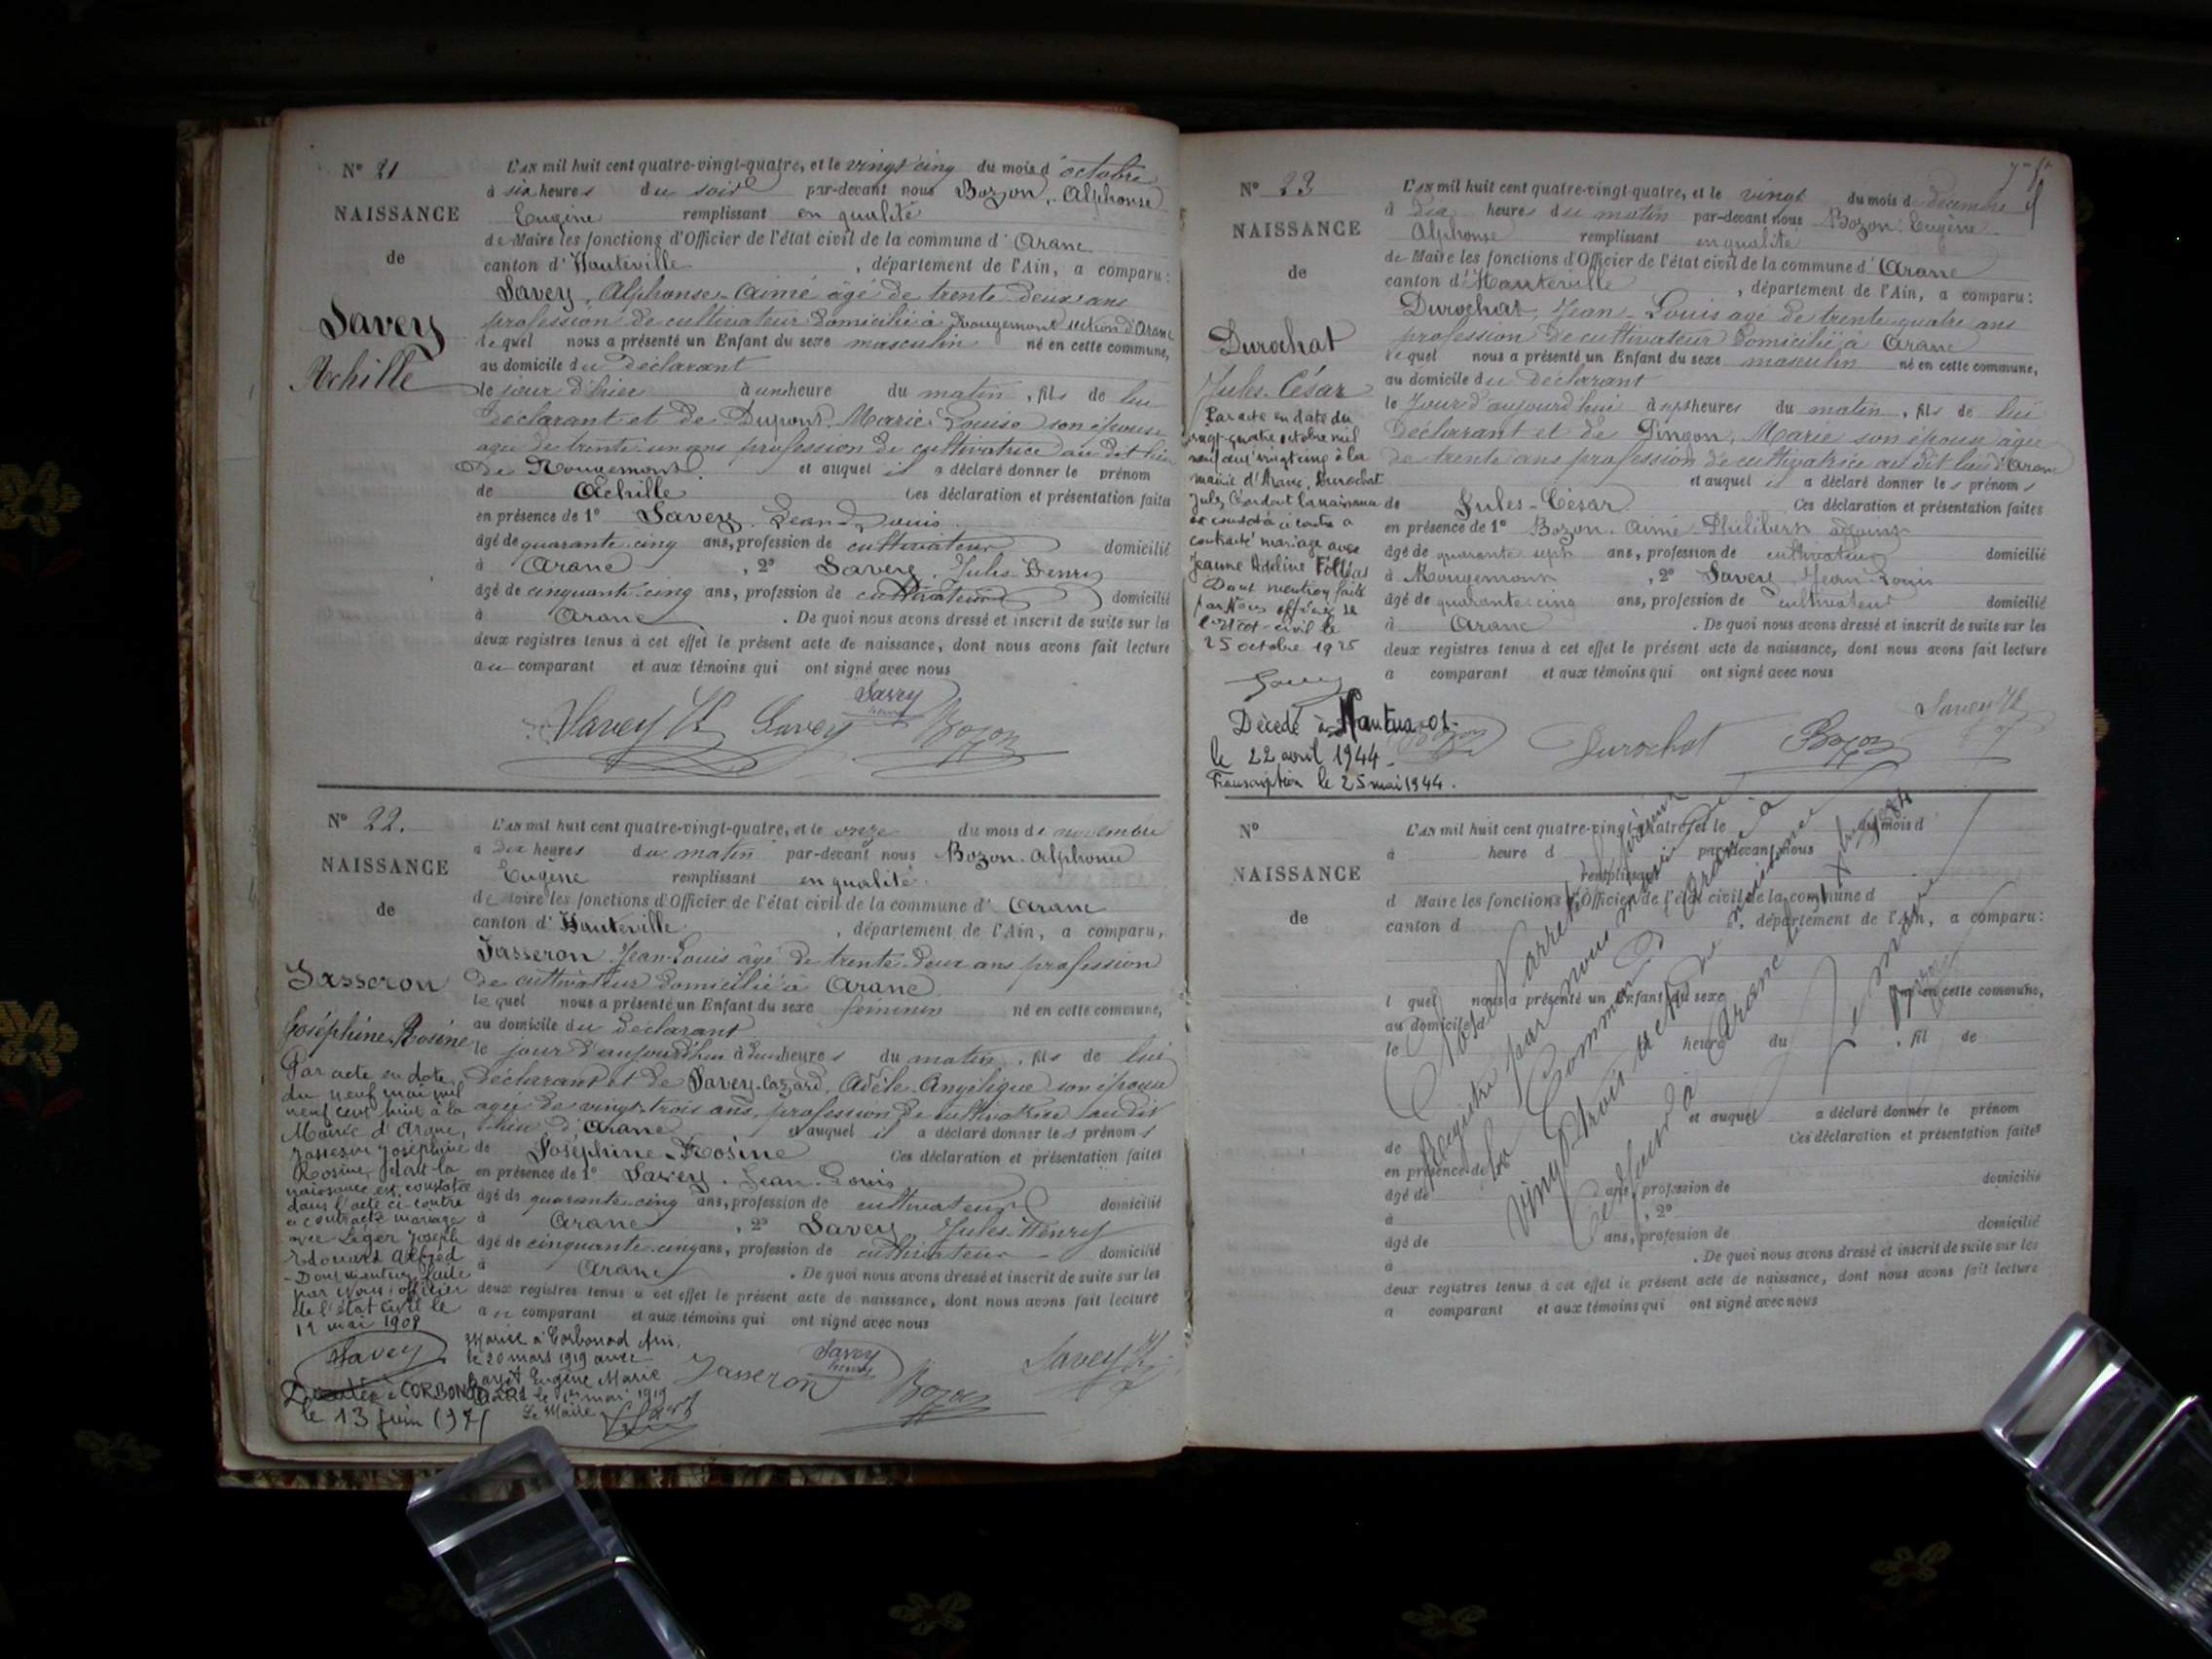 N° 21
NAISSANCE
de
Savey
Achille
L'AN mil huit cent quatre-vingt-quatre, et le vingt cinq du mois d'octobre
à six heures du soir par-devant nous Bozon, Alphonse
Eugène remplissant en qualité
de Maire les fonctions d'Officier de l'état civil de la commune d'Aranc
canton d'Hauteville, département de l'Ain, a comparu:
Savey, Alphonse-Aimé âgé de trente-deux ans
profession de cultivateur domicilié à Rougemont section d'Aranc
lequel nous a présenté un Enfant du sexe masculin né en cette commune,
au domicile du déclarant
le jour d'hier à une heure du matin, fils de lui
déclarant et de Dupont, Marie-Louise son épouse
agée de trente-un ans profession de cultivatrice au dit lieu
de Rougemont et auquel il a déclaré donner le prénom
de Achille Ces déclaration et présentation faites
en présence de 1° Savey, Jean-Louis
âgé de quarante-cinq ans, profession de cultivateur domicilié
à Aranc, 2° Savey, Jules-Henry
âgé de cinquante-cinq ans, profession de cultivateur domicilié
à Aranc. De quoi nous avons dressé et inscrit de suite sur les
deux registres tenus à cet effet le présent acte de naissance, dont nous avons fait lecture
au comparant et aux témoins qui ont signé avec nous
Savey Savey Savey henry Bozon
N° 22.
NAISSANCE
de
Jasseron
Joséphine-Rosine
Par acte en date
du neuf mai mil
neuf cent huit à la
Mairie d'Aranc,
Jasseron Joséphine
Rosine dont la
naissance est constatée
dans l'acte ci-contre
a contracté mariage
avec Léger Joseph
Edouard Alfred
- Dont mention faite
par Nous officier
de l'état civil le
11 mai 1908
Savey
L'AN mil huit cent quatre-vingt-quatre, et le onze du mois de novembre
à dix heures du matin par-devant nous Bozon-Alphonse
Eugène remplissant en qualité
de Maire les fonctions d'Officier de l'état civil de la commune d'Aranc
canton d'Hauteville, département de l'Ain, a comparu,
Jasseron Jean-Louis âgé de trente-deux ans profession
de cultivateur domicilié à Aranc
lequel nous a présenté un Enfant du sexe féminin né en cette commune,
au domicile du déclarant
le jour d'aujourd'hui à heures du matin, fils de lui
déclarant et de Savey-Lazard, Adèle-Angélique son épouse
agée de vingt-trois ans, profession de cultivatrice au dit
lieu d'Aranc et auquel il a déclaré donner les prénoms
de Joséphine-Rosine Ces déclaration et présentation faites
en présence de 1° Savey, Jean-Louis
âgé de quarante-cinq ans, profession de cultivateur domicilié
à Aranc, 2° Savey Jules-Henry
âgé de cinquante-cinq ans, profession de cultivateur domicilié
à Aranc. De quoi nous avons dressé et inscrit de suite sur les
deux registres tenus à cet effet le présent acte de naissance, dont nous avons fait lecture
au comparant et aux témoins qui ont signé avec nous
Mariée à Corbonod Ain,
le 20 mars 1919 avec
Eugène Marie
le 1er mai 1919
Le Maire
à CORBONOD
le 13 juin 197
Jasseron Savey henry Bozon Savey
N° 23
NAISSANCE
de
Durochat
Jules-César
Par acte en date du
vingt-quatre octobre mil
neuf cent vingt cinq à la
mairie d'Aranc, Durochat
Jules César dont la naissance
est constatée ci contre a
contracté mariage avec
Jeanne Adeline
Dont mention faite
par Nous officier de
l'état-civil le
25 octobre 1925
Savey
Décédé à Nantua - 01 -
le 22 avril 1944 -
Transcription le 25 mai 1944.
L'AN mil huit cent quatre-vingt-quatre, et le vingt du mois de décembre
à dix heures du matin par-devant nous Bozon Eugène
Alphonse remplissant en qualité
de Maire les fonctions d'Officier de l'état civil de la commune d'Aranc
canton d'Hauteville, département de l'Ain, a comparu:
Durochat, Jean-Louis agé de trente-quatre ans
profession de cultivateur domicilié à Aranc
lequel nous a présenté un Enfant du sexe masculin né en cette commune,
au domicile du déclarant
le jour d'aujourd'hui à sept heures du matin, fils de lui
déclarant et de Pingon, Marie son épouse âgée
de trente ans profession de cultivatrice au dit lieu d'Aranc
et auquel il a déclaré donner les prénoms
de Jules-César Ces déclaration et présentation faites
en présence de 1° Bozon, Aimé-Philibert adjoint
âgé de quarante sept ans, profession de cultivateur domicilié
à Rougemont, 2° Savey Jean-Louis
âgé de quarante-cinq ans, profession de cultivateur domicilié
à Aranc. De quoi nous avons dressé et inscrit de suite sur les
deux registres tenus à cet effet le présent acte de naissance, dont nous avons fait lecture
a comparant et aux témoins qui ont signé avec nous
Durochat Bozon Savey
N°
NAISSANCE
de
L'AN mil huit cent quatre-vingt-quatre, et le du mois d
à heure d par-devant nous
remplissant
d Maire les fonctions d'Officier de l'état civil de la commune d
canton d, département de l'Ain, a comparu:
l quel nous a présenté un Enfant du sexe né en cette commune,
au domicile d
le heure du, fil de
et auquel a déclaré donner le prénom
de Ces déclaration et présentation faites
en présence de 1°
âgé de ans, profession de domicilié
à, 2°
âgé de ans, profession de domicilié
à. De quoi nous avons dressé et inscrit de suite sur les
deux registres tenus à cet effet le présent acte de naissance, dont nous avons fait lecture
a comparant et aux témoins qui ont signé avec nous
Clos et arrêté le présent
Registre par nous maire de
la Commune d'Aranc à
vingt-trois actes de naissance
Aranc le 1884
Le maire
Bozon